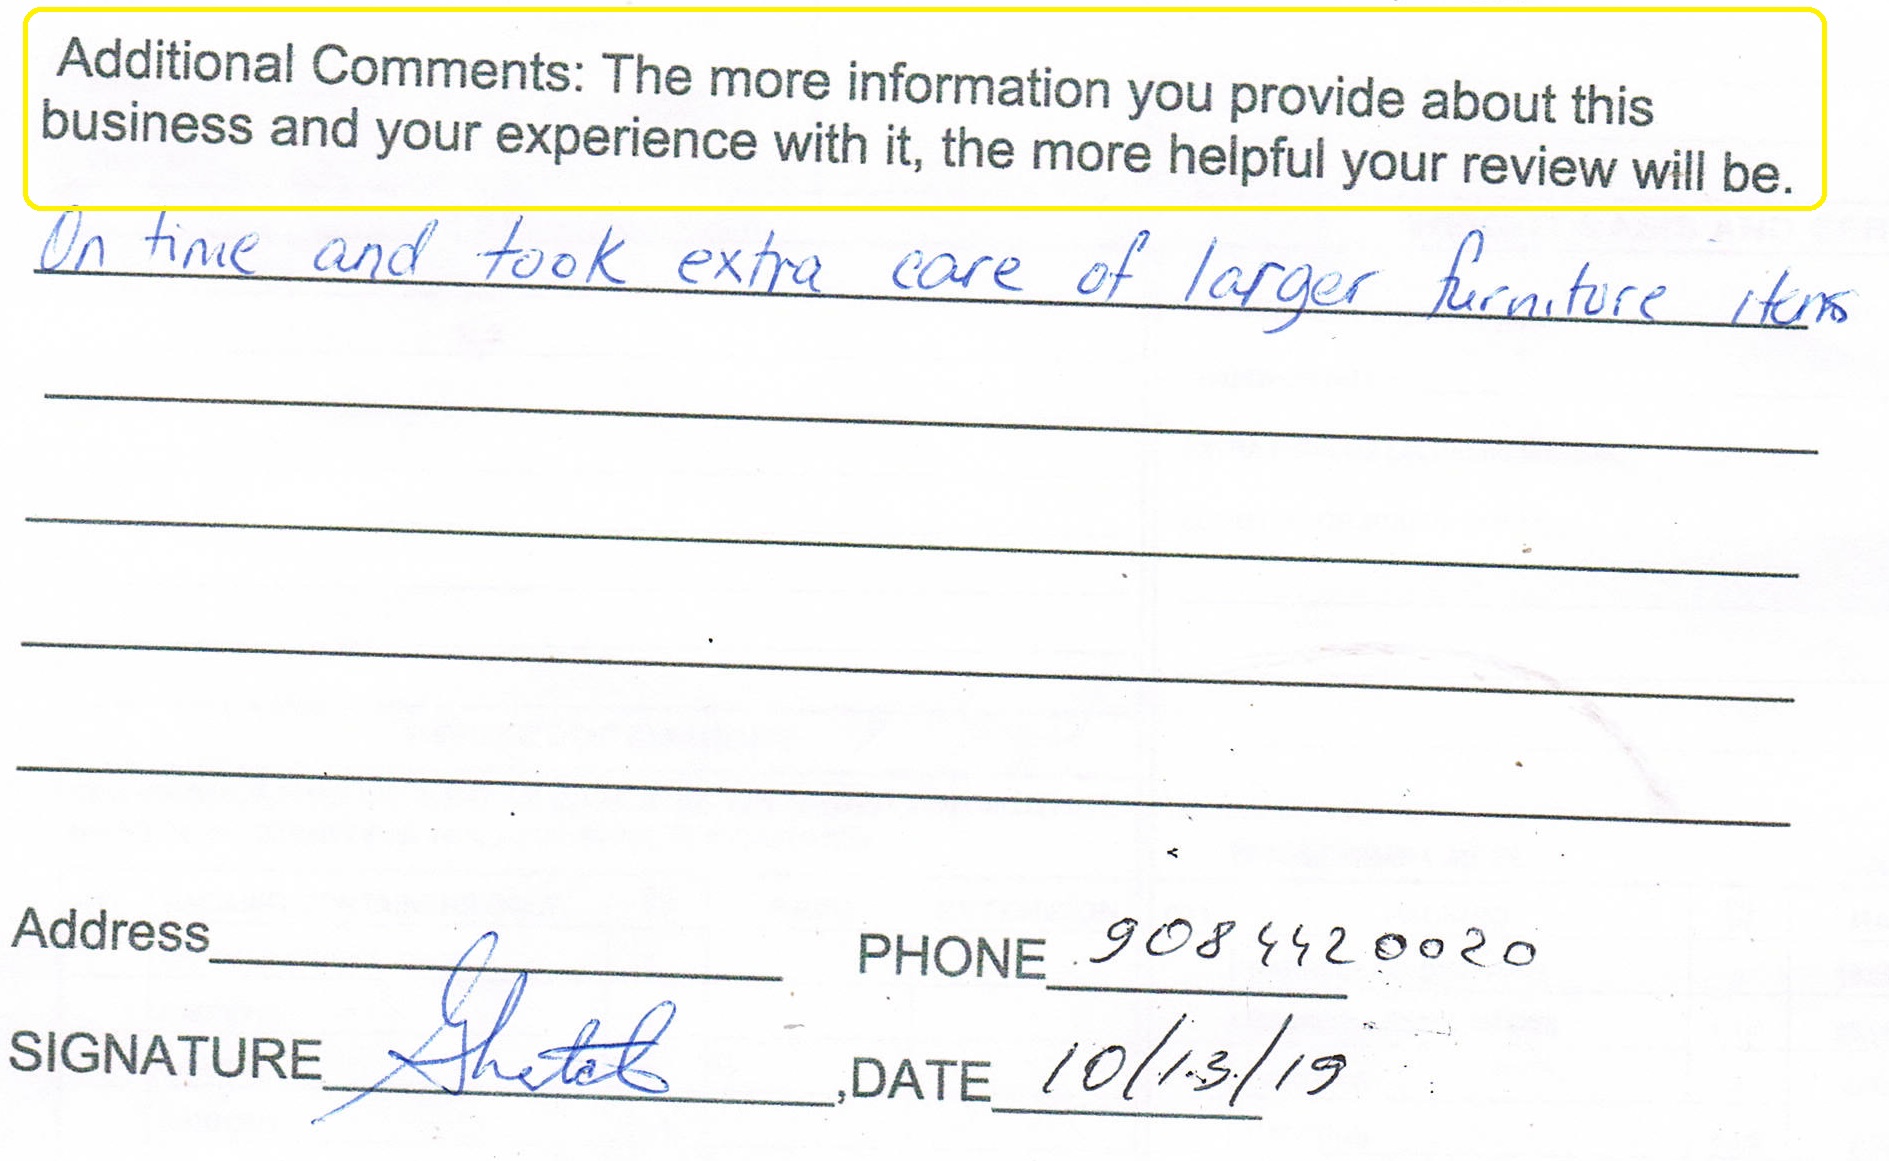 Additional Comments: The more information you provide about this
business and your experience with it, the more helpful your review will be.
On time and took extra care of larger furniture items
Address PHONE 9084420020
SIGNATURE ,DATE 10/13/19